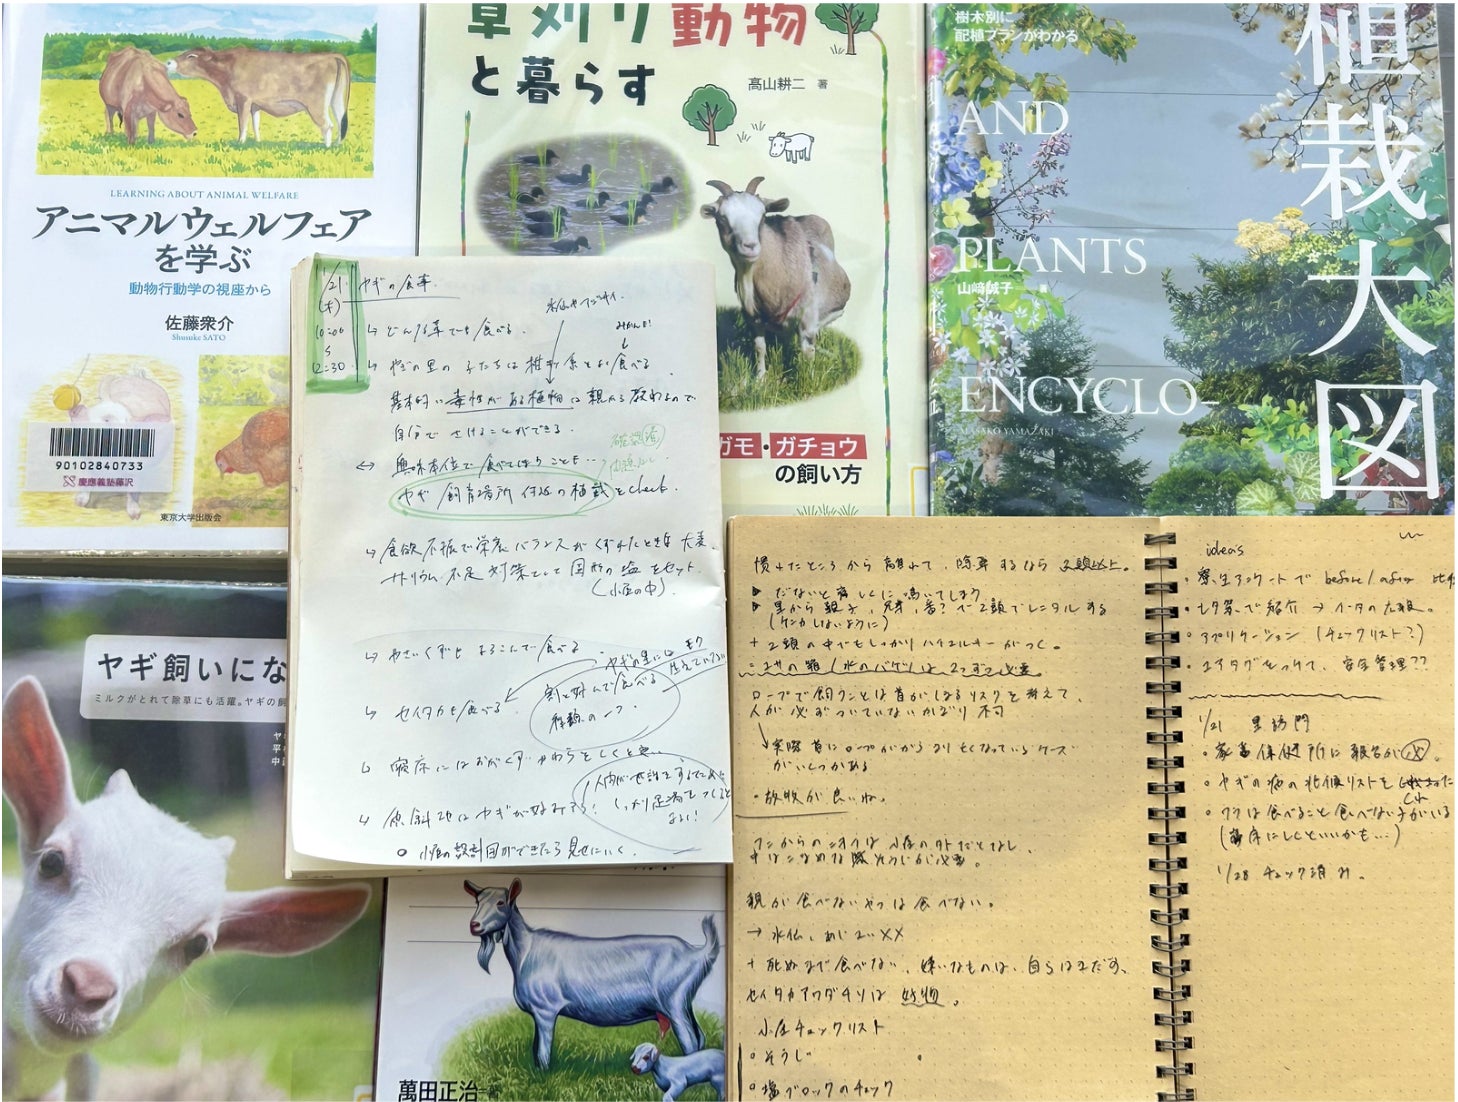 LEARNING ABOUT ANIMAL WELFARE
アニマルウェルフェア
を学ぶ
動物行動学の視座から
佐藤衆介
Shusuke SATO
90102840733
慶應義塾藤沢
東京大学出版会
草刈り動物
と暮らす
高山耕二 著
ガモ・ガチョウ
の飼い方
樹木別に
配植プランがわかる
植栽大図
AND
PLANTS
山﨑誠子 著
ENCYCLO-
MASAKO YAMAZAKI
ヤギ飼いにな
ミルクがとれて除草にも活躍。ヤギの飼
萬田正治 著
1/21 ヤギの食事
(木)
10:00
12:30
↳ どんな草でも食べる。
↳ やぎの里の子たちは 系とよく食べる
基本的に毒性がある植物は親から教わるので
自分でさけることができる。
↔ 興味本位で食べてしまうことも…
ヤギ飼育場所付近の植栽をcheck.
↳ 食欲不振で栄養バランスがくずれたときは大変。
ナトリウム不足対策として固形の塩をセット。
(小屋の中)
↳ やさいくずもよろこんで食べる。
↳ セイタカも食べる。
割と好んで食べる
種類の一つ
↳ 寝床にはおがくず、わらをしくと良い
↳ 傾斜地はヤギが好みそう!
○ 小屋の設計図ができたら見せにいく。
慣れたところから離れて、除草するなら 2頭以上。
▶ だないと寂しくて鳴いてしまう
▶ 里から親子、兄弟、番?で2頭でレンタルする
(ケンカしないように)
+ 2頭の中でもしっかりハイエルキーがつく。
= エサの箱/水のバケツは2つずつ必要。
ロープで飼うことは首がしまるリスクを考えて、
人が必ずついていないかぎり不可
↳ 実際首にロープがからまり亡くなっているケース
がいくつかある
・放牧が良いね。
フンからのニオイは小屋の外だとなし、
中はこまめな そうじが必要。
親が食べないやつは食べない。
→ 水仙、あじさい××
+ 死ぬまで食べない、嫌いなものは、自らはまだす、
セイタカアワダチソウは好物。
小屋チェックリスト
○ そうじ
○ 塩ブロックのチェック
ideas
・寮生アンケートで before/after 比
・七夕祭で紹介 → イータの広報。
・アプリケーション (チェックリスト?)
・エアタグをつけて、安全管理??
1/21 里訪問
・家畜保健所に報告が必
・ヤギの病の兆候リストを
・ワラは食べる子と食べない子がいる
(寝床にしくといいかも…)
1/28 チェック済み。